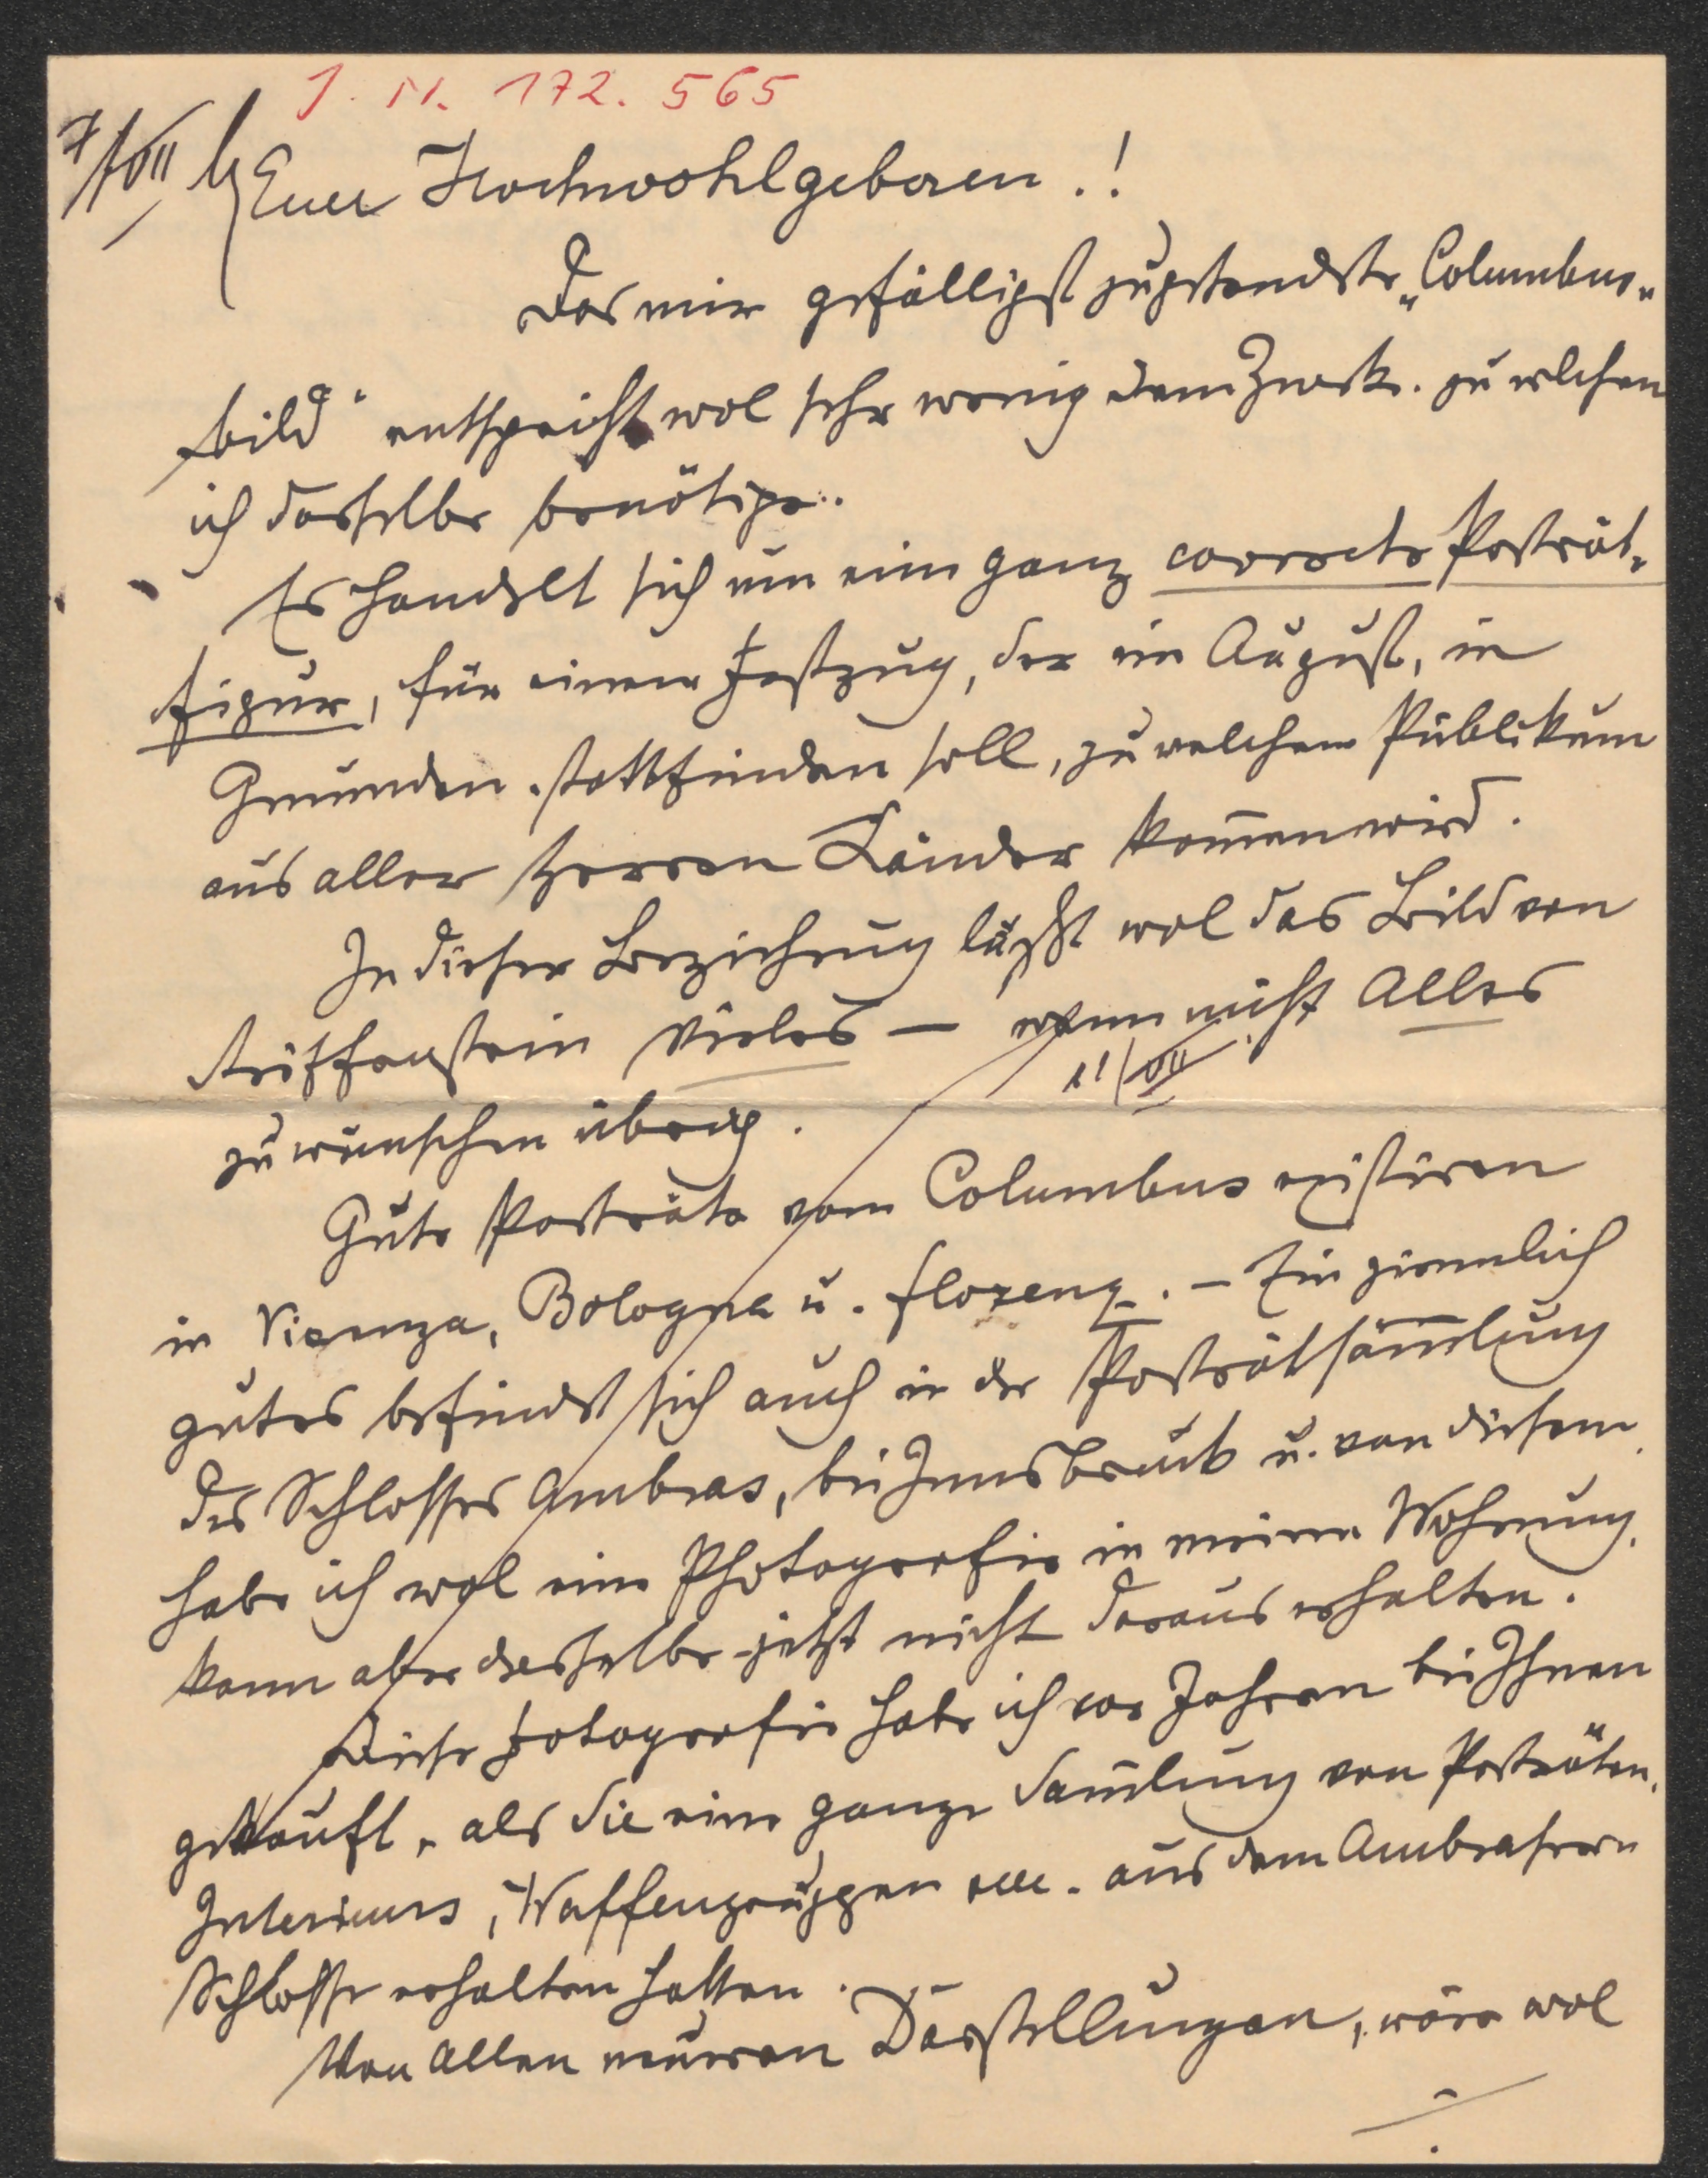 J. N. 172.565
7/VII
Euer Hochwohlgeboren.!
Das mir gefälligst zugesandte „Columbus„
bild“ entspricht wol sehr wenig dem Zweck. zu welchen
ich dasselbe benötige..
Es handelt sich um eine ganz correcte Porträt„
figur, für einen Festzug, der im August, in
Gmunden. stattfinden soll, zu welchem Publikum
aus aller Herren Länder kom̄en wird.
In dieser Beziehung läßt wol das Bild von
Kriffenstein Vieles — wenn nicht Alles
11/VII
zu wünschen übrig.
Gute Porträte vom Columbus existiren
in Vicenza, Bologna u. Florenz. – Ein ziemlich
gutes befindet sich auch in der Porträtsam̄lung
des Schlosses Ambras, bei Innsbruck u. von diesem
habe ich wol eine Photografie in meiner Wohnung,
kann aber dieselbe jetzt nicht daraus erhalten.
Diese Fotografie habe ich vor Jahren bei Ihnen
gekauft, als Sie eine ganze Sam̄lung von Porträten,
Interieurs, Waffengruppen etc. aus dem Ambraser
Schlosse erhalten hatten.
Von Allen neueren Darstellungen, wäre wol